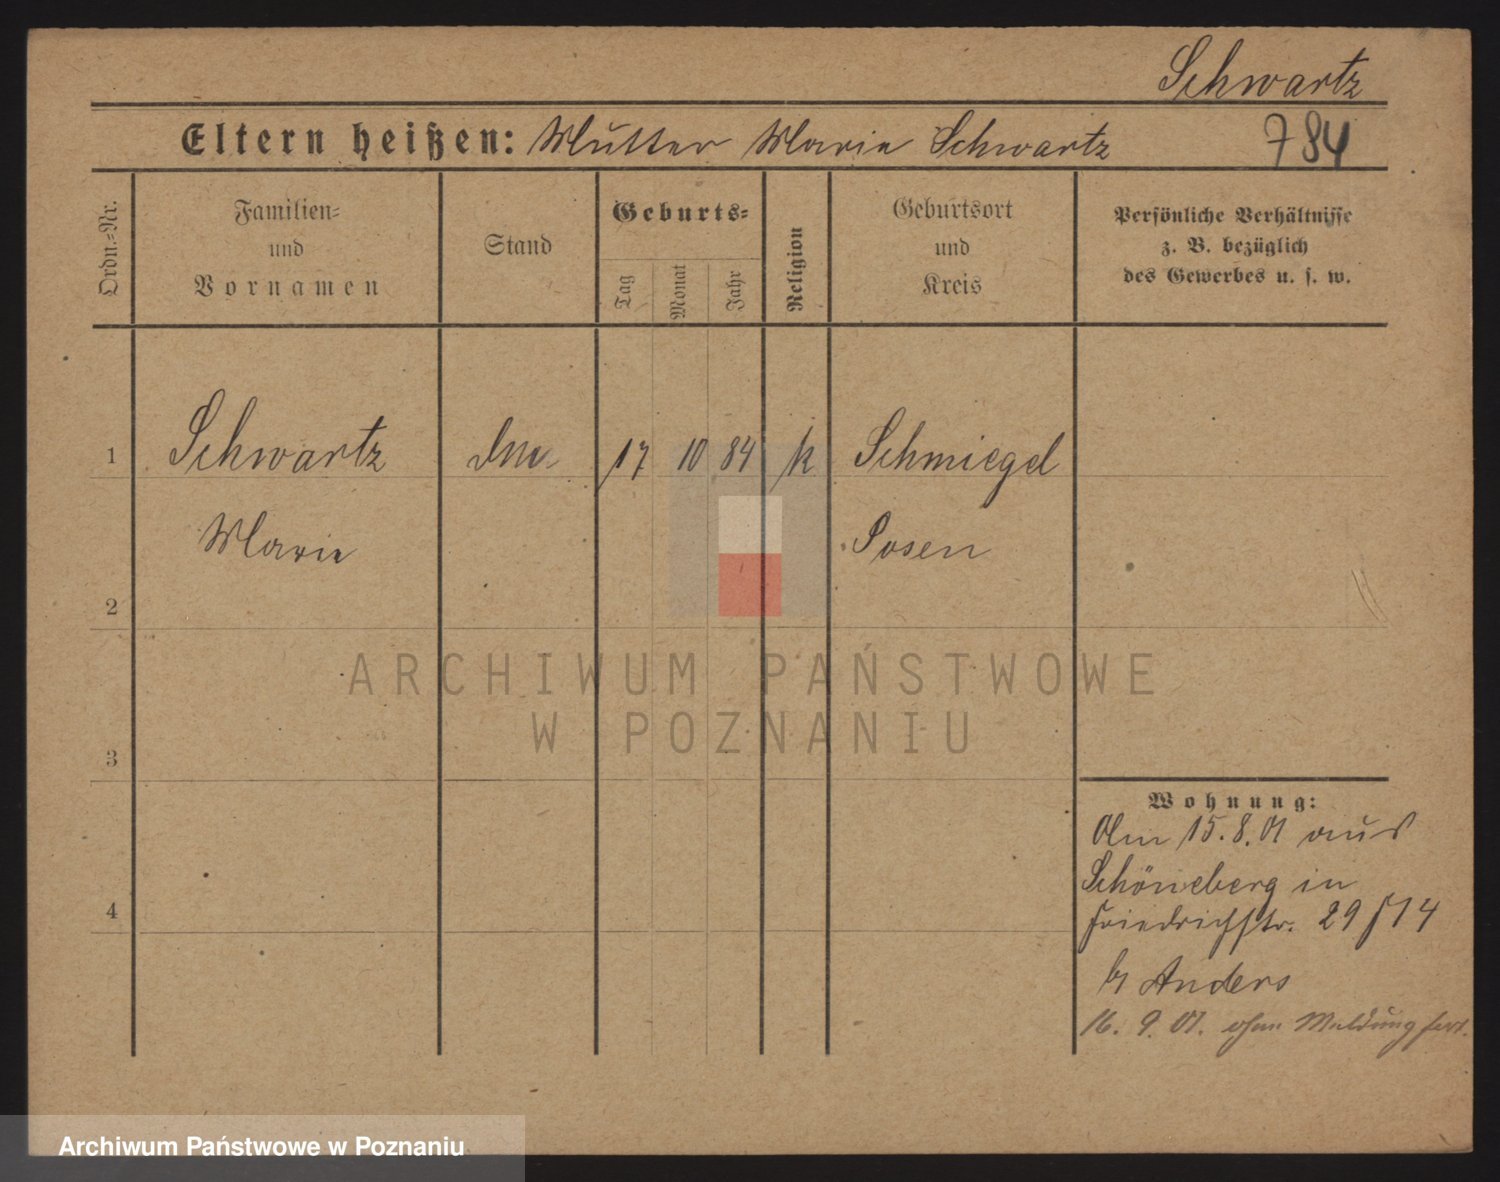 Schwartz
Eltern heißen: Mutter Marie Schwartz 784
Ordn.=Nr.
Familien=
und
Vornamen
Stand
Geburts=
Tag
Monat
Jahr
Religion
Geburtsort
und
Kreis
Persönliche Verhältnisse
z. B. bezüglich
des Gewerbes u. s. w.
1 Schwartz 17 10 84 k Schmiegel
Marie Posen
2
3
4
Wohnung:
Am 15.8.01 aus
Schöneberg in
Friedrichstr. 29
b/ Anders
16. 9. 01. ohne Meldung fort.
ARCHIWUM PAŃSTWOWE
W POZNANIU
Archiwum Państwowe w Poznaniu